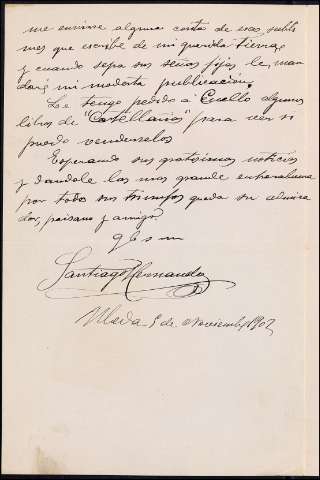 me envíase alguna carta de esas subli
mes que escribe de mi querida tierra,
y cuando sepa sus señas fijas le man
daré mi modesta publicación.
Le tengo pedido a Cuello algunos
libros de "Castellanas" para ver si
puedo vendérselos
Esperando sus gratísimas noticias
y dandole la mas grande enhorabuena
por todos sus triunfos queda su admira
dor, paisano y amigo.
q b s m
Santiago Hernando
Ubeda 5 de Noviembre 1902